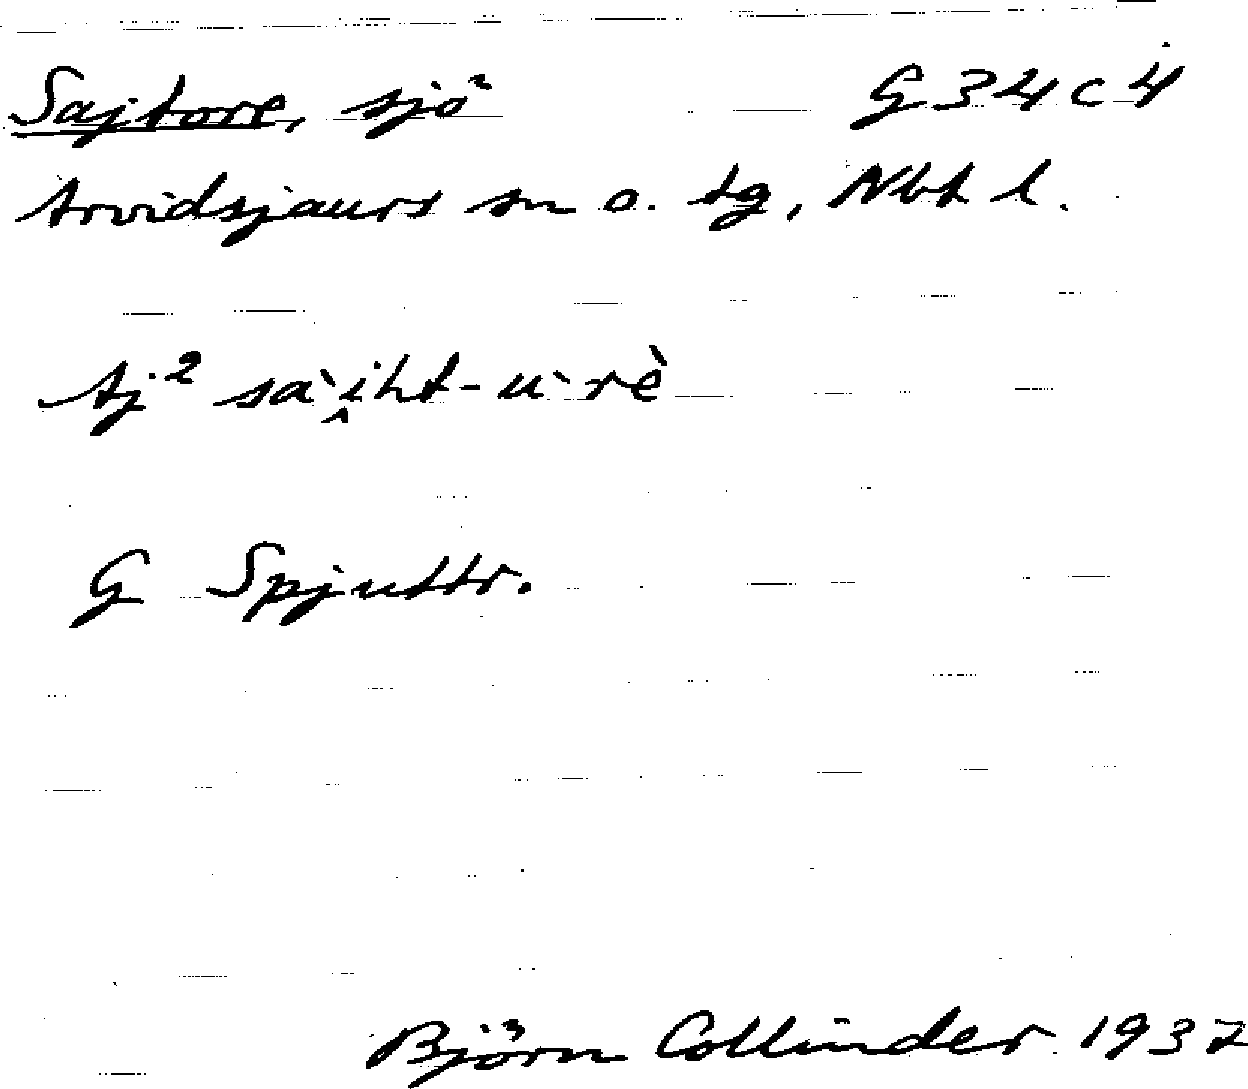 Sajtore, sjö G 34 c 4
Arvidsjaurs sn o. tg, Nbt l.
Aj² sài̭ht-ùrè
G Spjuttr.
Björn Collinder 1937